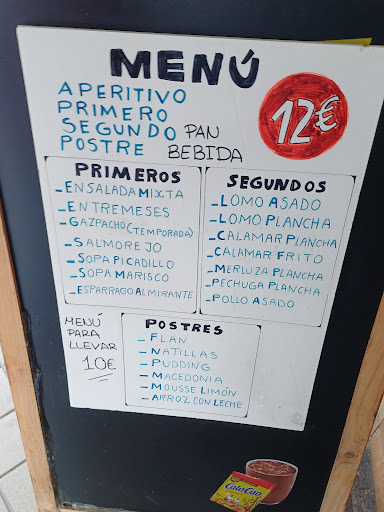 MENÚ
APERITIVO
PRIMERO
SEGUNDO PAN
POSTRE BEBIDA
12€
PRIMEROS
- ENSALADA MIXTA
- ENTREMESES
- GAZPACHO (TEMPORADA)
- SALMOREJO
- SOPA PICADILLO
- SOPA MARISCO
- ESPARRAGO ALMIRANTE
SEGUNDOS
- LOMO ASADO
- LOMO PLANCHA
- CALAMAR PLANCHA
- CALAMAR FRITO
- MERLUZA PLANCHA
- PECHUGA PLANCHA
- POLLO ASADO
MENÚ
PARA
LLEVAR
10€
POSTRES
- FLAN
- NATILLAS
- PUDDING
- MACEDONIA
- MOUSSE LIMÓN
- ARROZ CON LECHE
ColaCao